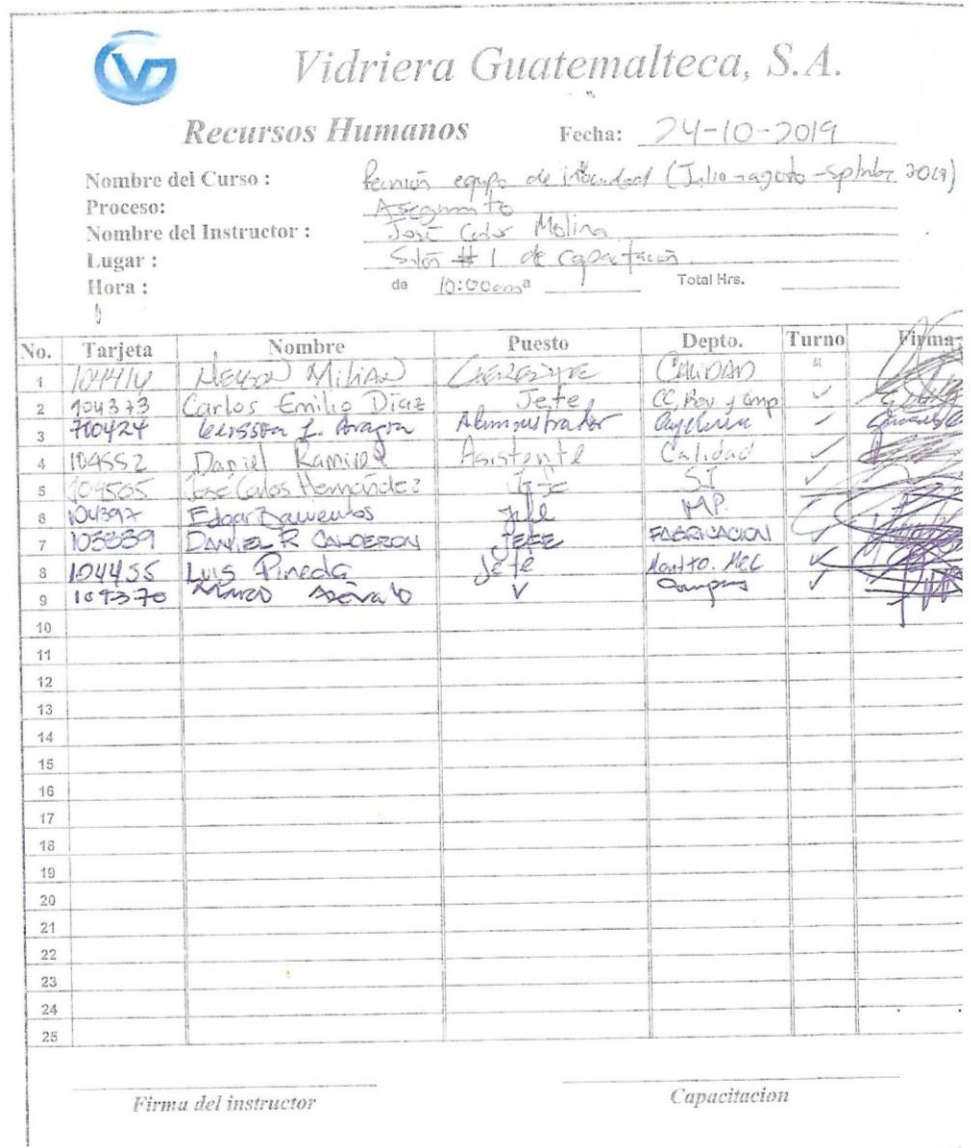 Vidriera Guatemalteca, S.A.
Recursos Humanos Fecha: 24-10-2019
Nombre del Curso : Reunión equipo de inocuidad (Julio-agosto-Sptmbr 2019)
Proceso:
Nombre del Instructor : José Carlos Molina
Lugar : Salón #1 de Capacitación.
Hora : de 10:00am a Total Hrs.
No. Tarjeta Nombre Puesto Depto. Turno Firma
1 Milian CALIDAD "
2 104373 Carlos Emilio Díaz Jefe CC, Rev y Emp ✓
3 700424 Administrador ✓
4 104552 Daniel Ramirez Asistente Calidad ✓
5 104505 José Carlos Hernández Jefe SI ✓
6 104397 Edgar Barrientos Jefe MP. ✓
7 103839 DANIEL R CALDERON JEFE FABRICACION ✓
8 104455 Luis Pineda Jefe Mantto. Mec ✓
9 104370 ✓ Compras ✓
10
11
12
13
14
15
16
17
18
19
20
21
22
23
24
25
Firma del instructor Capacitacion